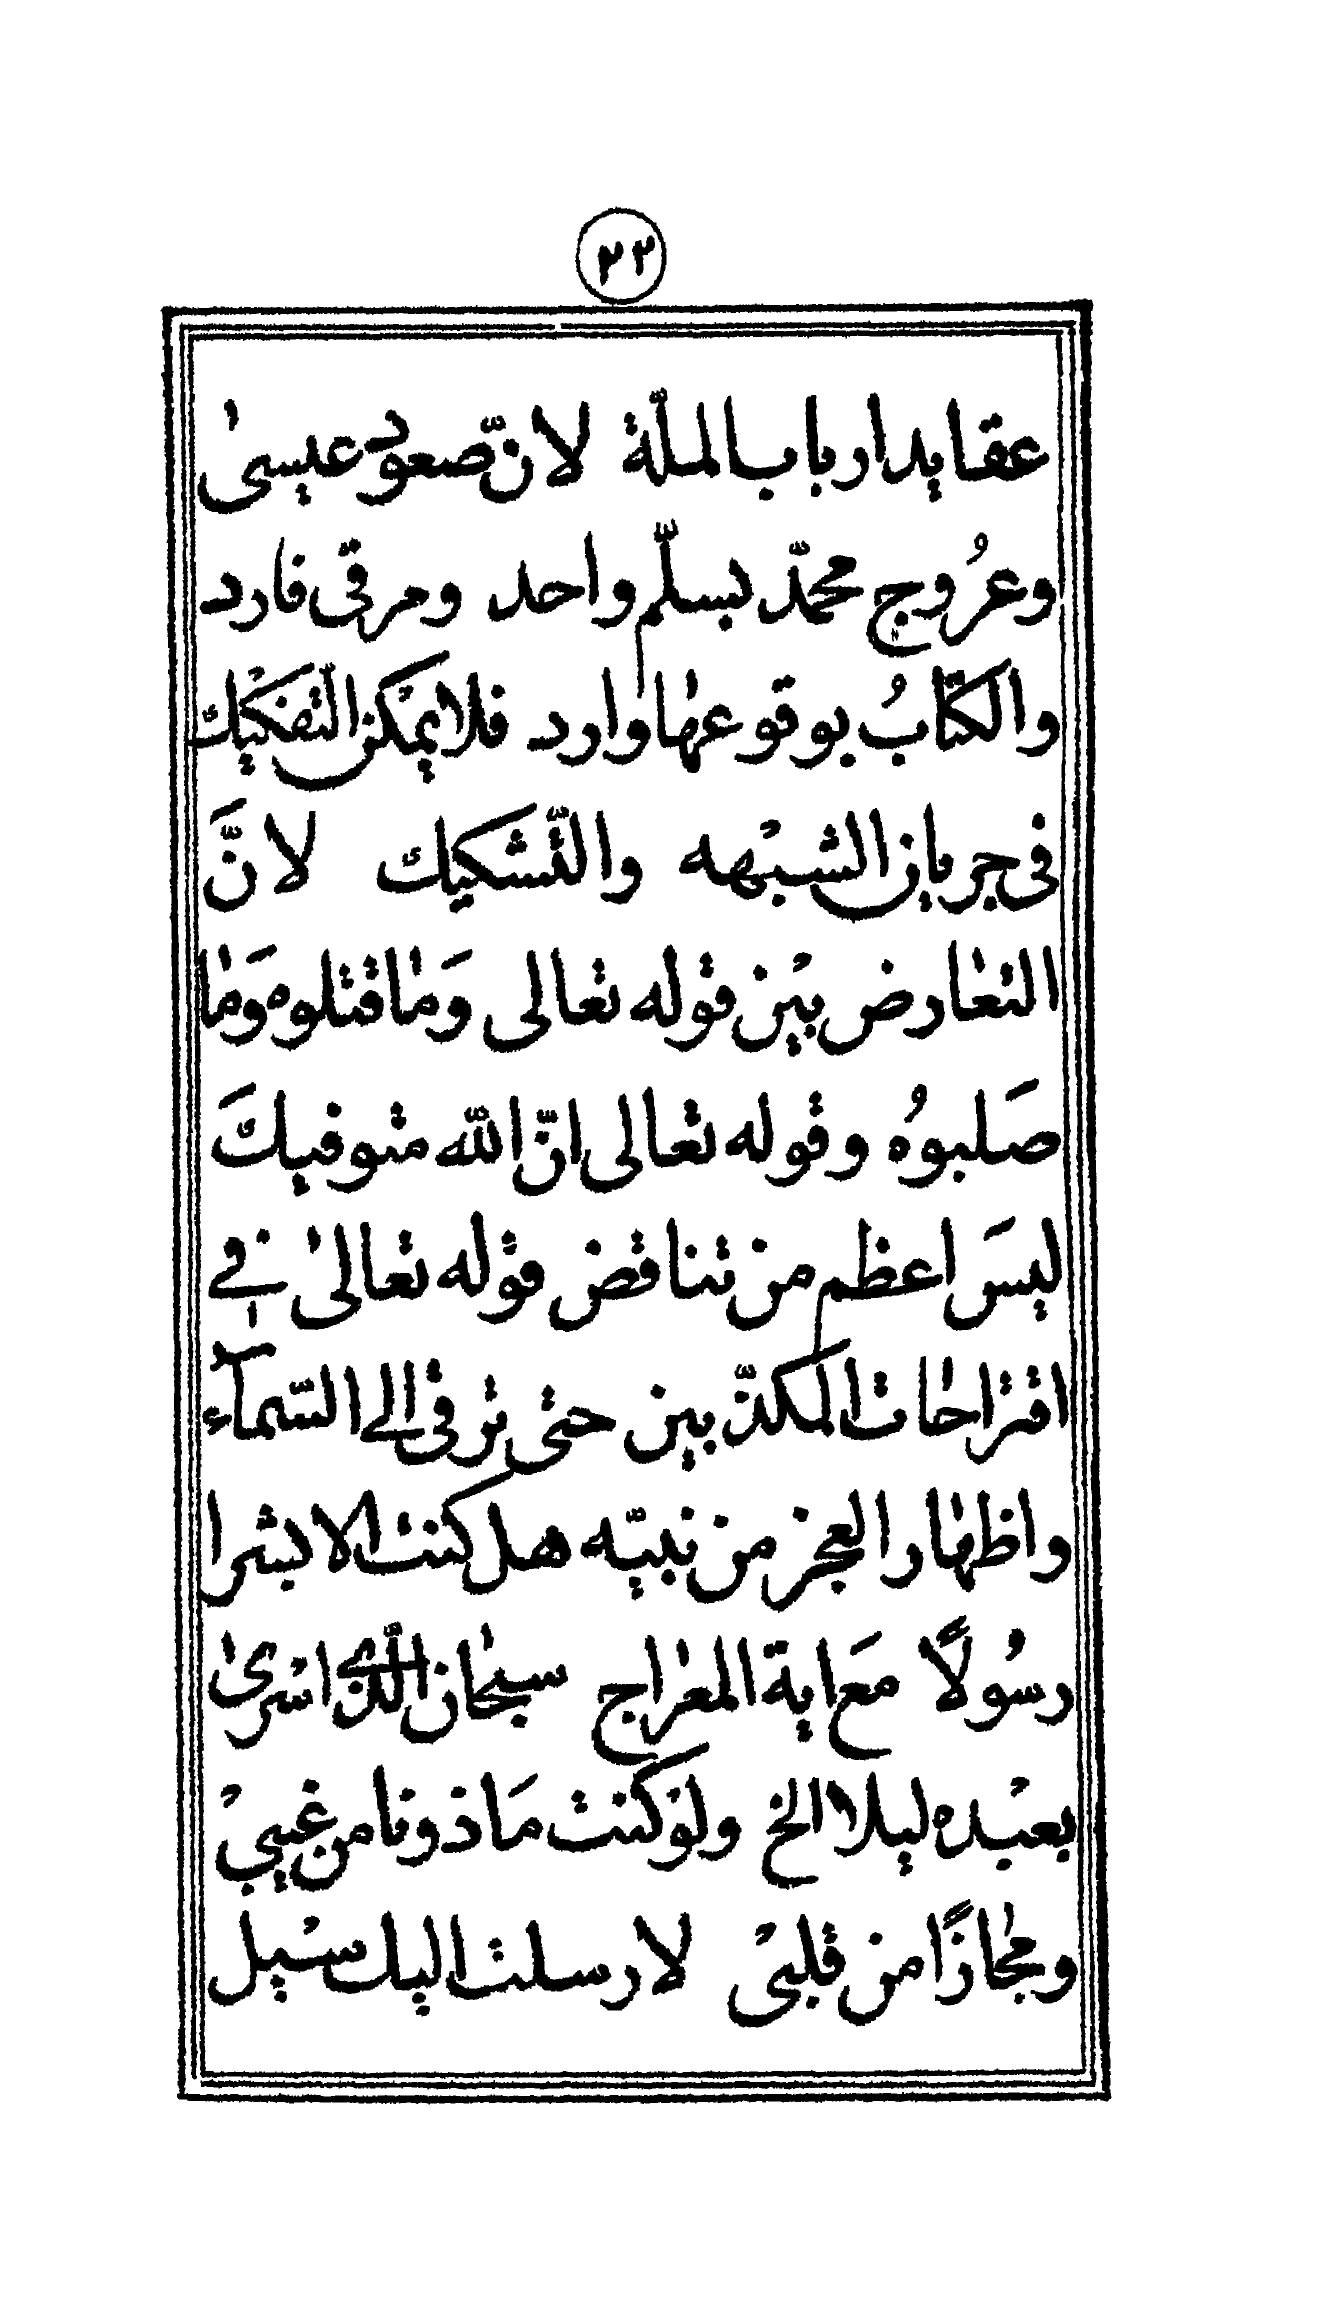 ٢٢
عقايد ارباب الملّة لانّ صعود عيسىٰ
وعرُوج محمّد بسلّم واحد ومرقى فارد
والكتّابُ بوقوعهٰا وارد فلا يمكن التفكيك
فى جريان الشبهه والتّشكيك لانَّ
التعٰارض بين قوله تعالى وَمٰا قتلوه وَمٰا
صَلبوُه وقوله تعالى انّ الله متوفيكَ
ليسَ اعظم من تناقض قوله تعالىٰ في
اقترٰاحٰات المكذّبين حتى ترقى الى السّمآء
واظهٰار العجز من نبيّه هل كنت الا بشرا
رسُولًا مَع اية المعرٰاج سبحٰان الّذى اسْرىٰ
بعبْده ليلا الخ ولوْ كنت مَاذونا من غيبىْ
ومجٰازًا من قلبىْ لارسلت اليك سيل